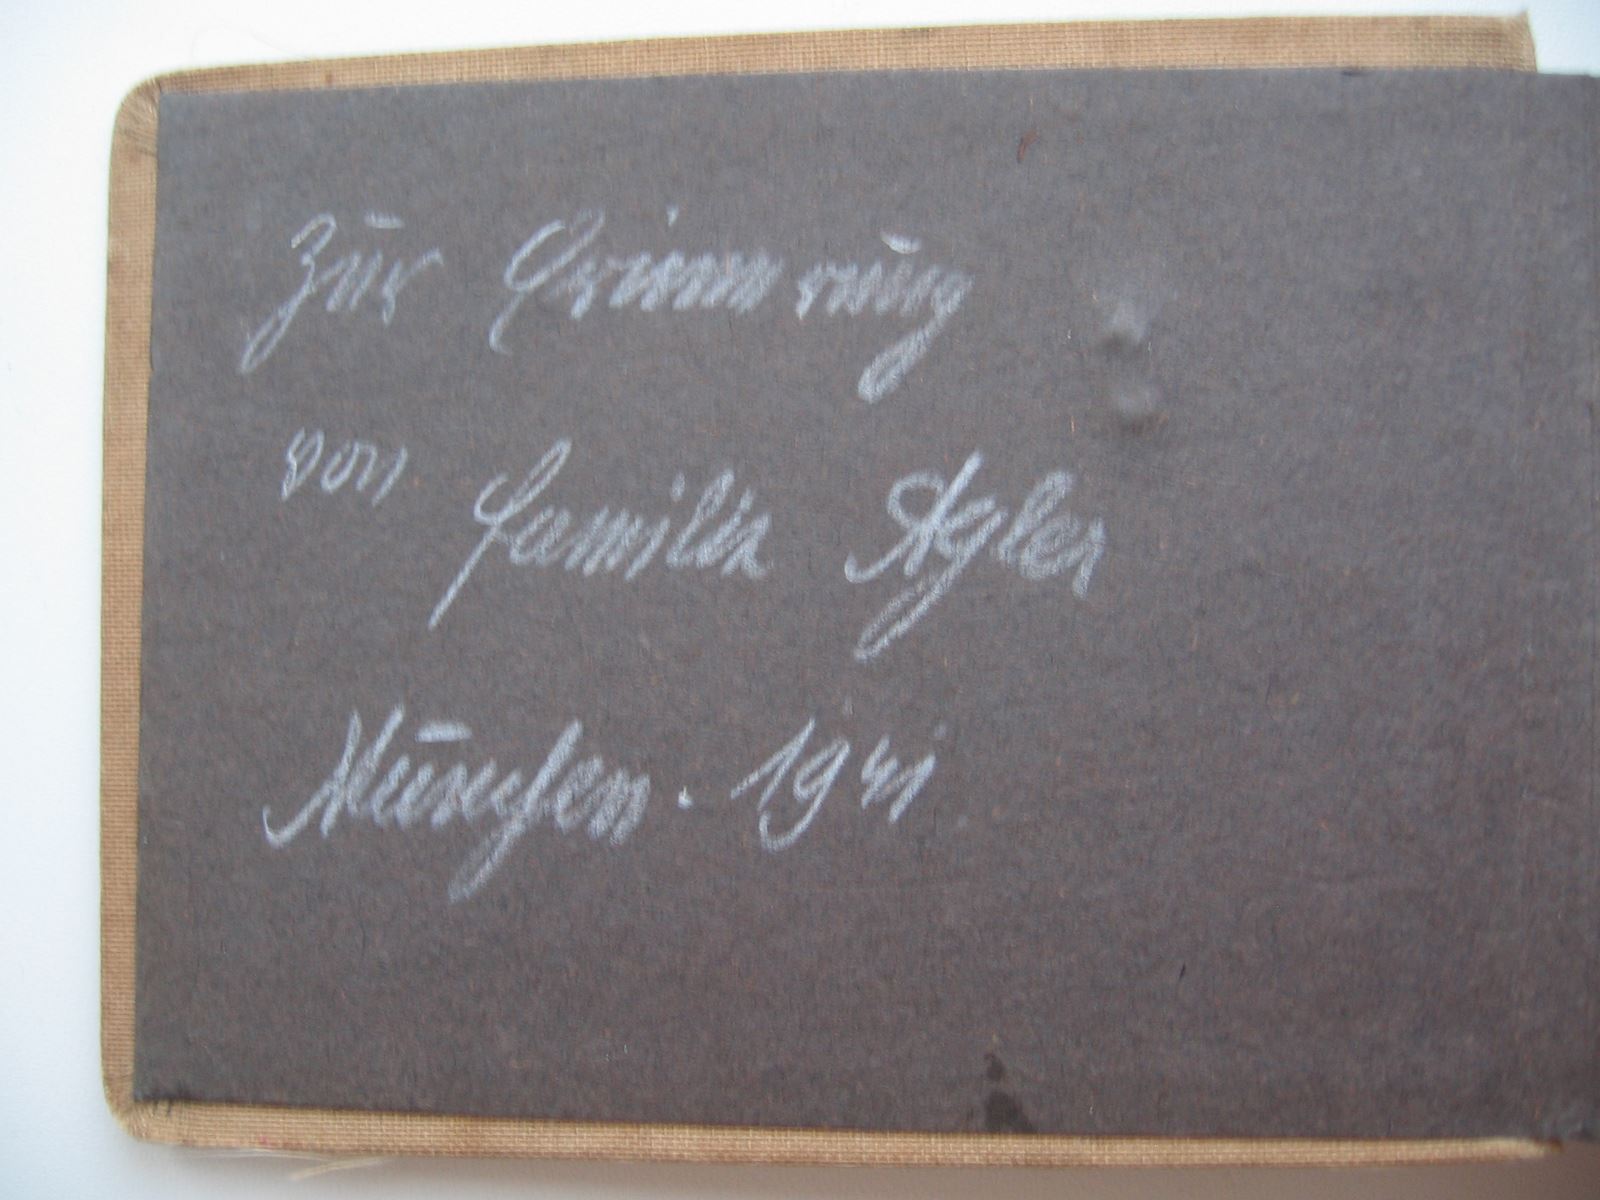 Zur Erinnerung
von Familie Agler
München. 1941